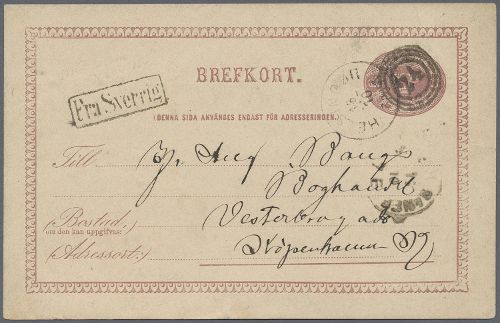 BREFKORT.
(DENNA SIDA ANVÄNGES ENDAST FÖR ADRESSERINGEN.)
Fra Sverrig
24
Till
Hr. Aug Bang
Boghandel
Bostad:
(om den kan uppgifvas)
Vesterbrogade
Adressort:
Köpenhamn